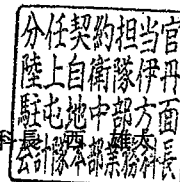 分任契約担当官
陸上自衛隊伊丹
駐屯地中部方面
会計隊本部業務科長
科長 西 雄